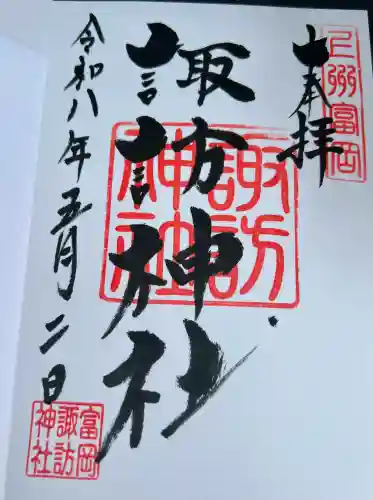 上州富岡
奉拝
諏訪神社
諏訪神社
令和八年五月二日
富岡諏訪神社